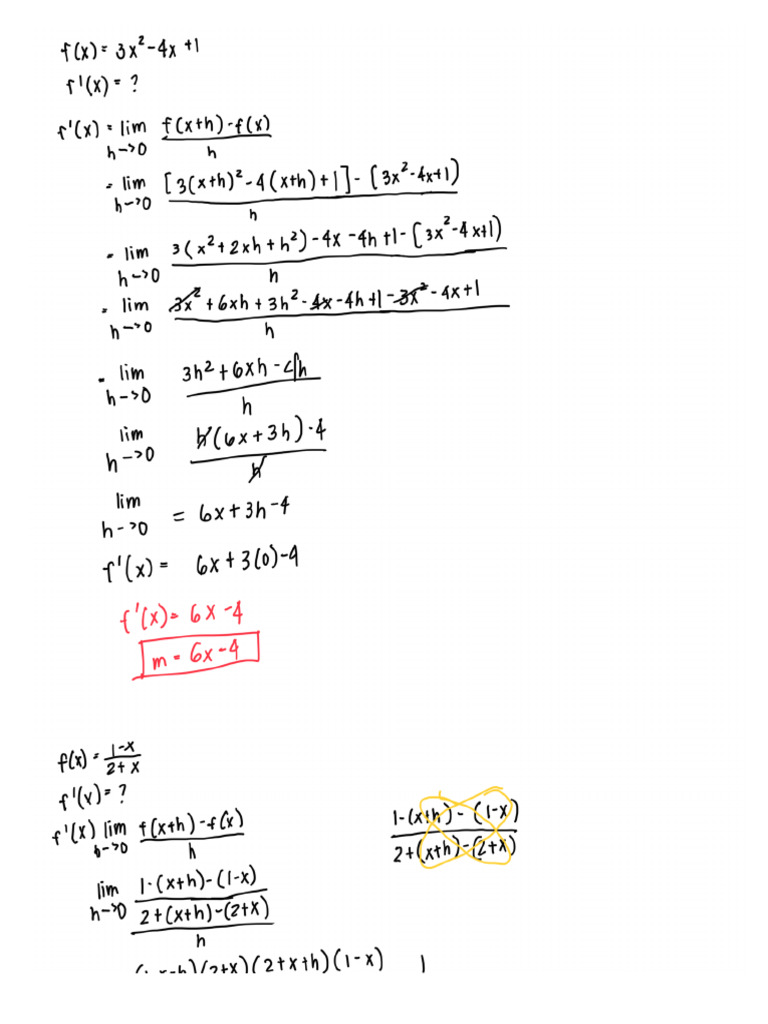 f(x) = 3x² - 4x + 1
f'(x) = ?
f'(x) = lim h->0 f(x+h) - f(x) / h
= lim h->0 [3(x+h)² - 4(x+h) + 1] - [3x² - 4x + 1) / h
= lim h->0 3(x² + 2xh + h²) - 4x - 4h + 1 - [3x² - 4x + 1) / h
= lim h->0 3x² + 6xh + 3h² - 4x - 4h + 1 - 3x² - 4x + 1 / h
= lim h->0 3h² + 6xh - 4h / h
lim h->0 h(6x + 3h) - 4 / h
lim h->0 = 6x + 3h - 4
f'(x) = 6x + 3(0) - 4
f'(x) = 6x - 4
m = 6x - 4
f(x) = 1-x / 2+x
f'(x) = ?
f'(x) lim h->0 f(x+h) - f(x) / h
lim h->0 1-(x+h)-(1-x) / 2+(x+h)-(2+x) / h
1-(x+h) - (1-x) / 2+(x+h)-(2+x)
(2+x)(2+x+h)(1-x) 1